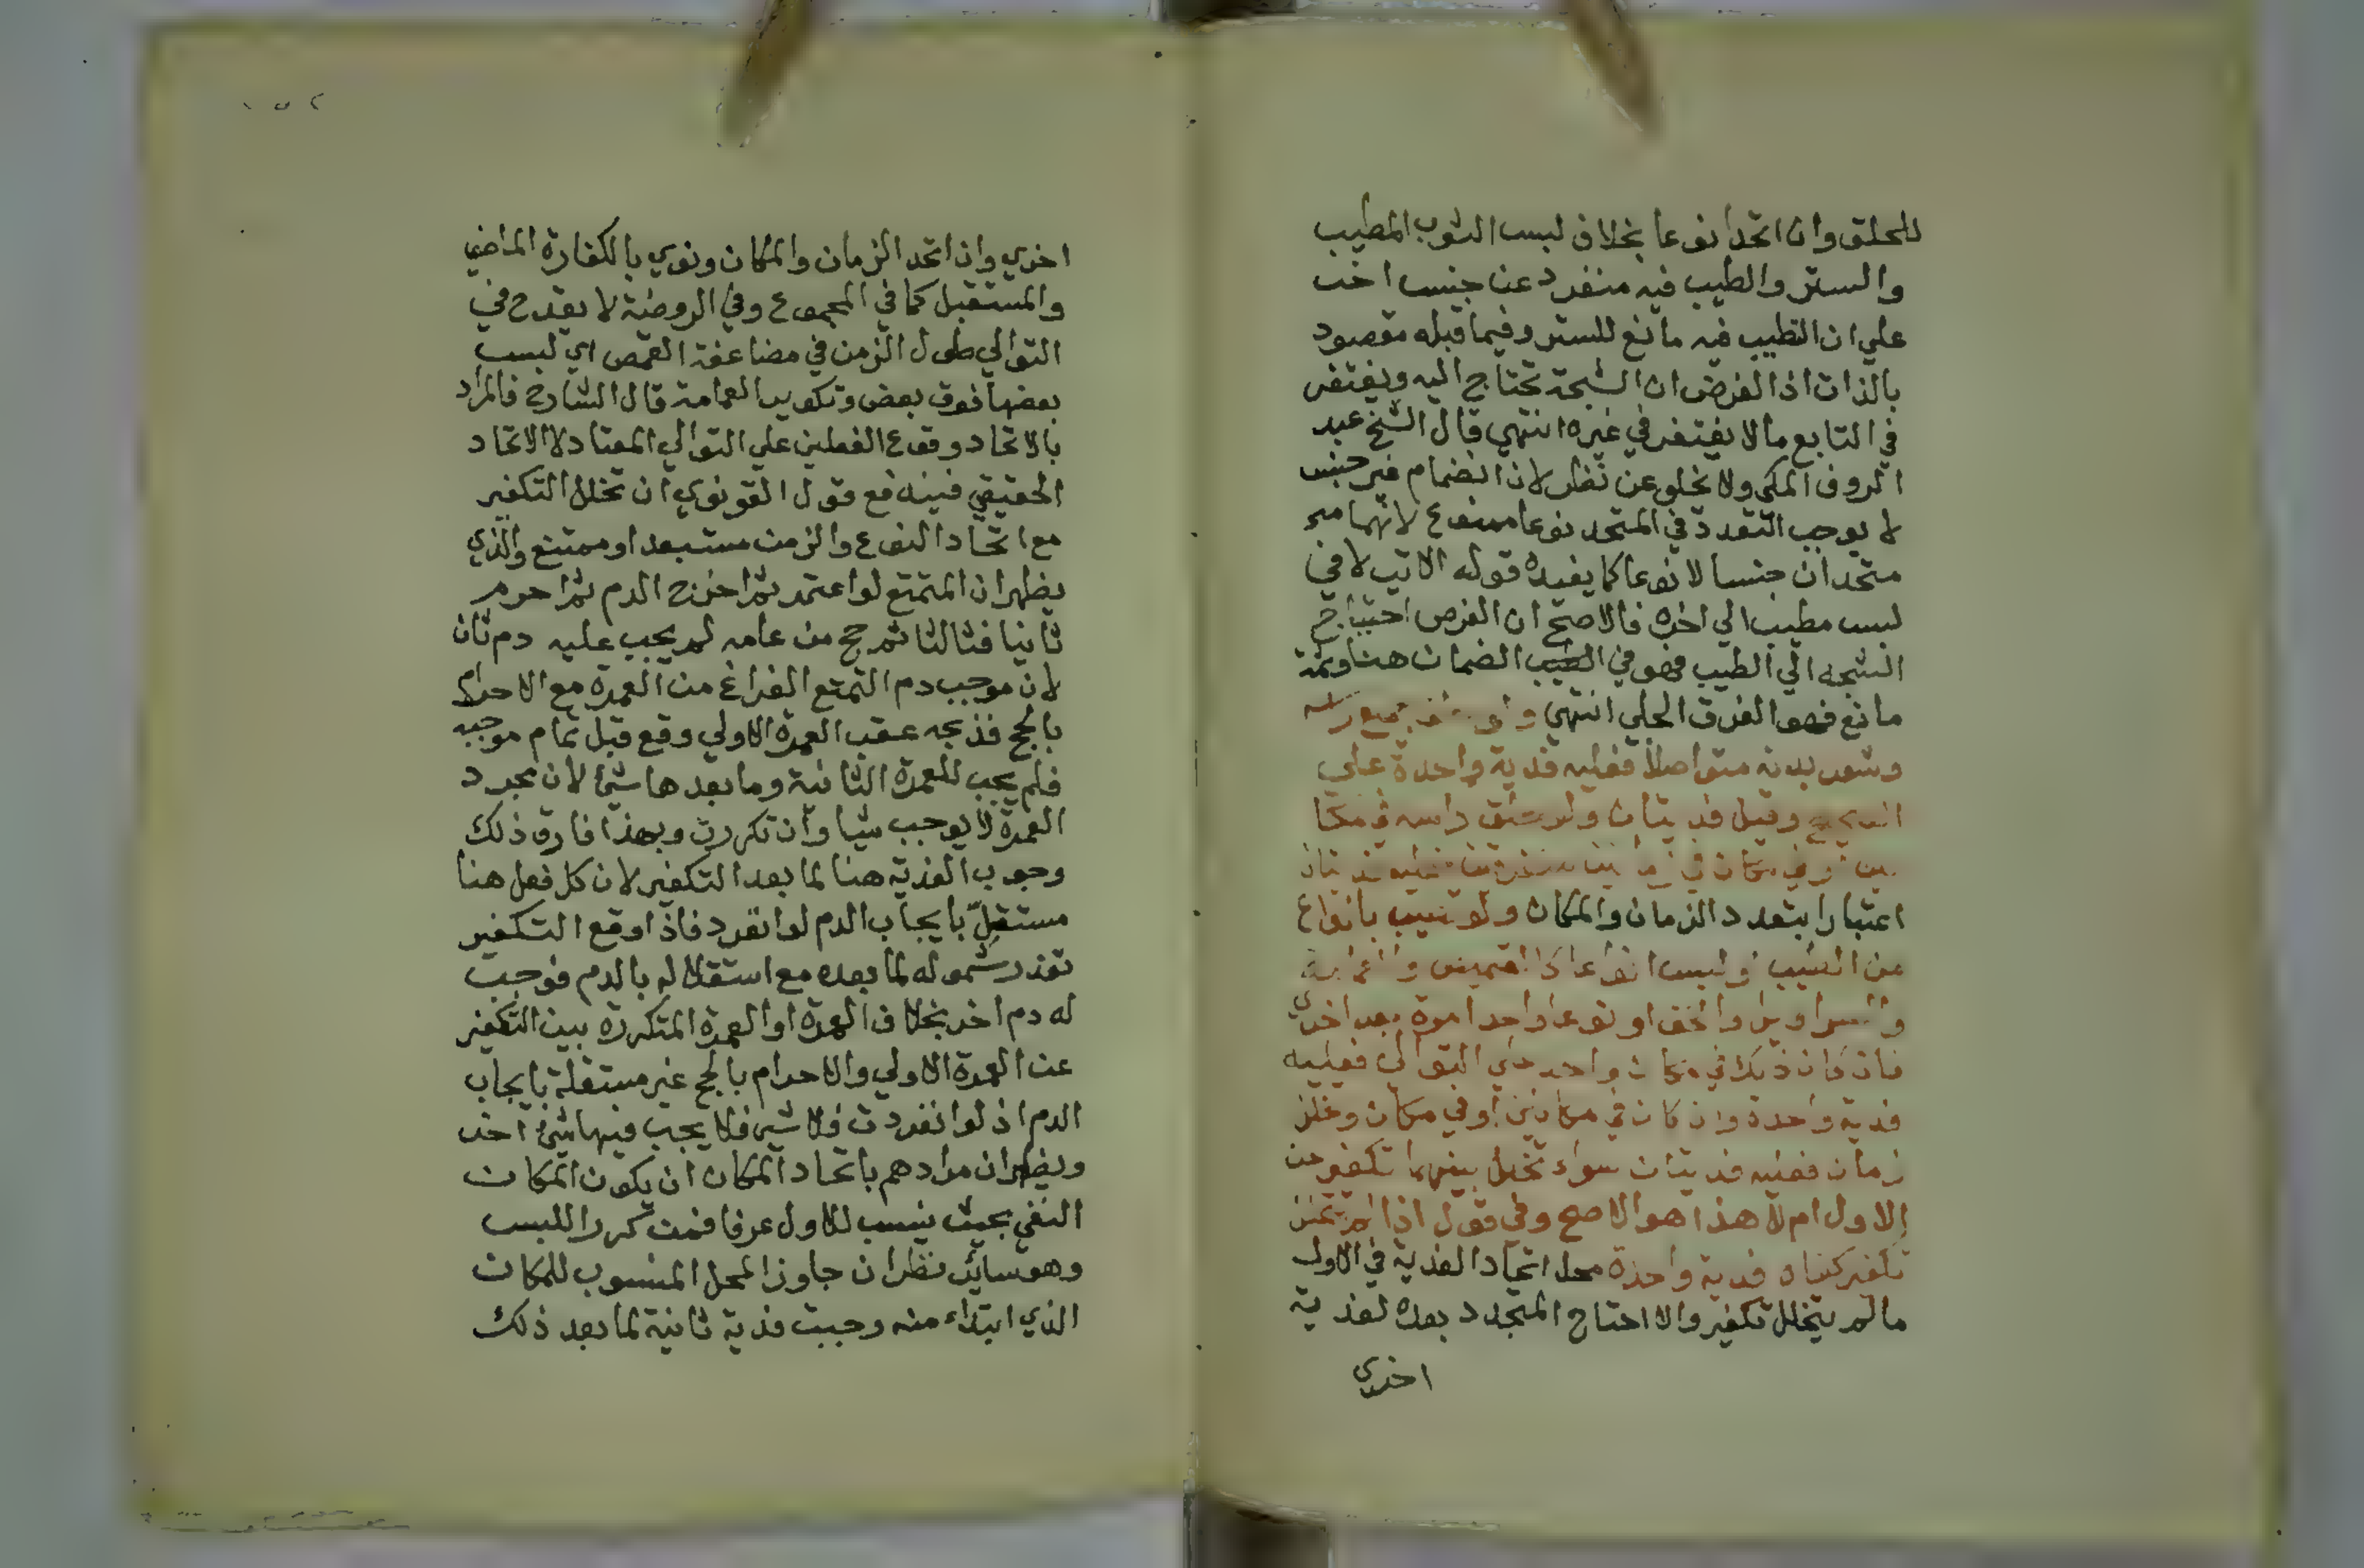 للحلق وان اتحدا نوعا بخلاف لبس الثوب المطيب
والستر والطيب فيه منفرد عن جنس اخر
علي ان التطيب فيه مانع للستر وفيما قبله مقصود
بالذات اذ الفرض ان الشجة تحتاج اليه ويغتفر
في التابع ما لا يغتفر في غيره انتهي قال الشيخ عبد
الروف المكي ولا يخلو عن نظر لان انضمام غير جنس
لا يوجب التعدد في المتحد نوعا ممنوع لانهما
متحدان جنسا لا نوعا كما يفيده قوله الاتي لا في
لبس مطيب الي اخره فالاصح ان الفرض احتياج
الشجه الي الطيب فهو في الضمان هنا وثمة
مانع فهو الفرق الجلي انتهي ولو حلق جميع راسه
وشعر بدنه متواصلا فعليه فدية واحدة علي
الصحيح وقيل فديتان ولو حلق راسه في مكا
نين او في مكان في زمانين متفرقين فعليه فديتان
اعتبارا بتعدد الزمان والمكان ولو تطيب بانواع
من الطيب او لبس انواعا كالقميص والعمامة
والسراويل والخف او نوعا واحدا مرة بعد اخري
فان كان ذلك في مكان واحد علي التوالي فعليه
فدية واحدة وان كان في مكانين او في مكان وتخلل
زمان فعليه فديتان سواء تخلل بينهما تكفير عن
الاول ام لا هذا هو الاصح وفي قول اذا لم يتخلل
تكفير كفاه فدية واحدة محل اتحاد الفدية في الاول
مالم يتخلل تكفير والا احتاج المتجدد بعده لفدية
اخري
١٥٢
اخري وان اتحد الزمان والمكان ونوي بالكفارة الماضي
والمستقبل كما في المجموع وفي الروضة لا يقدح في
التوالي طول الزمن في مضاعفة القمص اي لبس
بعضها فوق بعض وتكوير العمامة قال الشارح فالمراد
بالاتحاد وقوع الفعلين علي التوالي المعتاد لا الاتحاد
الحقيقي فبينه مع قول القونوي ان تخلل التكفير
مع اتحاد النوع والزمن مستبعد او ممتنع والذي
يظهر ان المتمتع لو اعتمر ثم اخرج الدم ثم احرم
ثانيا فثالثا ثم حج من عامه لم يجب عليه دم ثان
لان موجب دم التمتع الفراغ من العمرة مع الاحرام
بالحج فذبحه عقب العمرة الاولي وقع قبل تمام موجبه
فلم يجب للعمرة الثانية وما بعدها شئ لان مجرد
العمرة لا يوجب شيا وان تكررت وبهذا فارق ذلك
وجوب الفدية هنا لما بعد التكفير لان كل فعل هنا
مستقل بايجاب الدم لو انفرد فاذا وقع التكفير
تعذر شموله لما بعده مع استقلاله بالدم فوجب
له دم اخر بخلاف العمرة او العمرة المتكررة بين التكفير
عن العمرة الاولي والاحرام بالحج غير مستقلة بايجاب
الدم اذ لو انفردت فلا شي فلا يجب فيها شئ اخر
ويظهر ان مرادهم باتحاد المكان ان يكون المكان
النفي بحيث ينسب للاول عرفا فمن كرر اللبس
وهو سائر نظر ان جاوز المحل المنسوب للمكان
الذي ابتداء منه وجبت فدية ثانية لما بعد ذلك